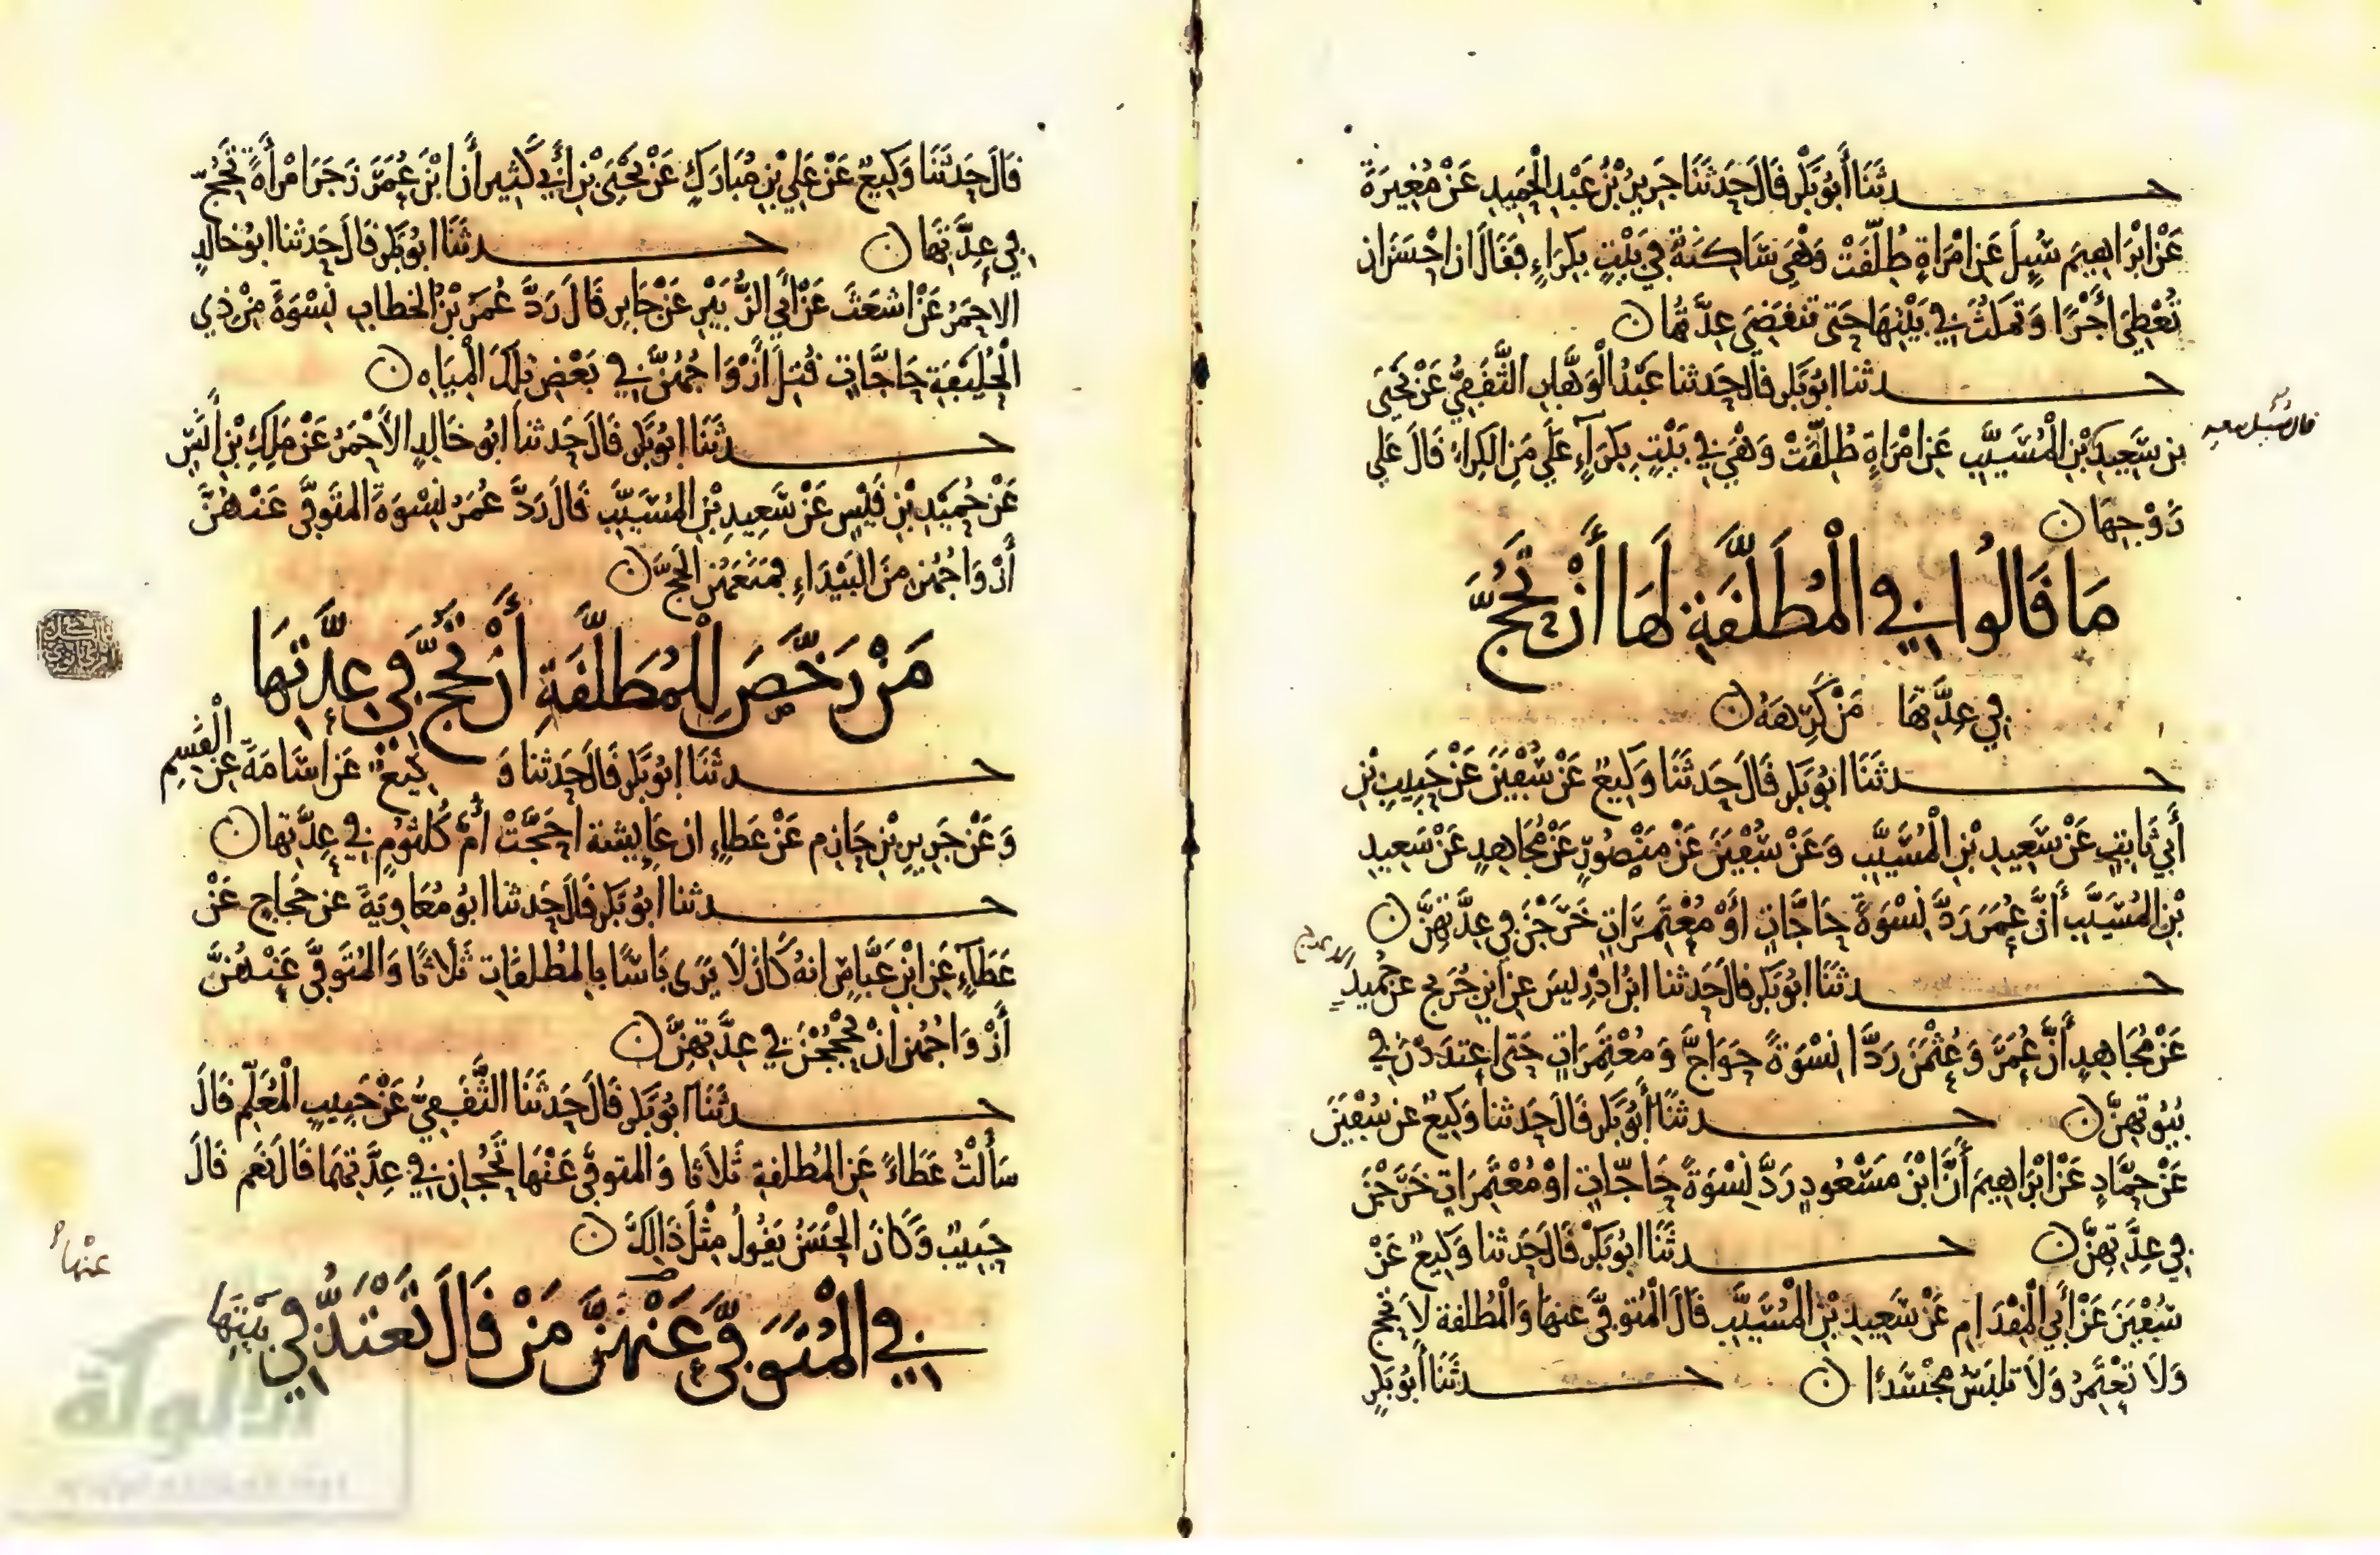 حدثَنَا أَبُو بَكْرٍ قَالَ حَدثَنَا جَرِيرُ بْنُ عَبْدِ الْحَمِيدِ عَنْ مُغِيرَةَ
عَنْ ابْرَاهِيمَ سُيِلَ عَنِ امْرَاةٍ طُلّقَتْ وَهْيَ سَاكِنَةٌ فِي بَيْتٍ بِكِرَاءٍ فَقَالَ ان احْسَنَ ان
تُعْطِيَ أَجْرًا وَتَمْكُثَ فِي بَيْتِهَا حَتى تَنقَضِيَ عِدَّتُهَا
حدثنا ابُو بَكْرٍ قالَ حَدثنا عَبْدُ الْوَهَّابِ الثَّقَفِيُّ عَنْ يَحْيَى
قال سُئل سعيد
بن سَعِيدِ بْنِ الْمُسَيَّبِ عَنِ امْرَاةٍ طُلِّقَتْ وَهْيَ فِي بَيْتٍ بِكِرَآءٍ عَلَى مَنِ الكِرَاءُ قَالَ عَلَى
زَوْجِهَا
مَا قَالُوا فِي الْمُطَلَّقَةِ لَهَا أَنْ تَحُجَّ
فِي عِدَّتِهَا مَنْ كَرِهَهُ
حدثَنَا ابُو بَكْرٍ قَالَ حَدثَنَا وَكِيعٌ عَنْ سُفْيَنَ عَنْ حَبِيبِ بْنِ
أَبِي ثَابِتٍ عَنْ سَعِيدِ بْنِ الْمُسَيَّبِ وَعَنْ سُفْيَنَ عَنْ مَنْصُورٍ عَنْ مُجَاهِدٍ عَنْ سَعِيدِ
بْنِ المُسَيَّبِ أَنَّ عُمَرَ رَدَّ نِسْوَةً حَاجَّاتٍ أَوْ مُعْتَمِرَاتٍ خَرَجْنَ فِي عِدَّتِهِنَّ
حدثَنَا ابُو بَكْرٍ قالَ حَدثنا ابْنُ ادْرِيسَ عنِ ابْنِ جُرَيْجٍ عن حُمَيْدٍ
الاعرج
عَنْ مُجَاهِدٍ أَنَّ عُمَرَ وَعُثْمَنَ رَدَّا نِسْوَةً حَوَاجَّ وَمُعْتَمِرَاتٍ حَتى اعْتَدَدْنَ فِي
بُيُوتِهِنَّ حدثَنَا أَبُو بَكْرٍ قَالَ حَدثنا وَكِيعٌ عن سُفْيَنَ
عَنْ حَمَّادٍ عَنْ ابْرَاهِيمَ أَنَّ ابْنَ مَسْعُودٍ رَدَّ نِسْوَةً حَاجّاتٍ اوْ مُعْتَمِرَاتٍ خَرَجْنَ
فِي عِدَّتِهِنَّ حدثَنَا ابُو بَكْرٍ قَالَ حَدثنا وَكِيعٌ عَنْ
سُفْيَنَ عَنْ أَبِي الْمِقْدَامِ عَنْ سَعِيدِ بْنِ الْمُسَيَّبِ قَالَ الْمُتَوَفَّى عنهَا وَالْمُطلقة لاَ تَحُج
وَلاَ تَعْتَمِرُ وَلاَ تَلبَسُ مُجْسَدًا حدثَنَا أَبُو بَكْرٍ
قَالَ حَدثَنَا وَكِيعٌ عَنْ عَلِي بْنِ مُبَارَكٍ عَنْ يَحْيَى بْنِ أَبِي كَثِيرٍ أَنَّ ابْنَ عُمَرَ زَجَرَ امْرأَةً تَحُجّ
فِي عِدَّتِهَا حدثَنَا ابُو بَكْرٍ قَالَ حَدثنا ابُو خالدٍ
الاحْمَرُ عَنْ اشعَثَ عَنْ أَبِي الزُّبَيْرِ عَنْ جَابِرٍ قَالَ رَدَّ عُمَرُ بْنُ الخطاب نِسْوَةً مِنْ ذِي
الْحُلَيْفَةِ حَاجَّاتٍ قُتِلَ أَزْوَاجُهُنَّ فِي بَعْضِ تِلكَ الْمِيَاهِ
حدثَنَا ابُو بَكْرٍ قَالَ حَدثنَا ابُو خَالِدٍ الأَحْمَرُ عَنْ مَلِكِ بْنِ أَنَسٍ
عَنْ حُمَيْدِ بْنِ قَيْسٍ عَنْ سَعِيدِ بْنِ المُسَيَّبِ قَالَ رَدَّ عُمَرُ نِسْوَةً المتَوفَّى عَنْهُنَّ
أَزْوَاجُهُن مِنَ البَيْدَاءِ يَمْنَعُهُن الْحَجّ
مَنْ رَخَّصَ لِلْمُطَلَّقَةِ أَنْ تَحُجَّ فِي عِدَّتِهَا
حدثَنَا ابُو بَكْرٍ قَالَ حَدثنا وَكِيعٌ عَن اسَامَةَ عنِ الْقَسِمِ
وَعَنْ جَرِيرِ بْنِ حَازِم عَنْ عَطاءٍ ان عَايِشة احَجَّتْ أُمَّ كُلثومٍ فِي عِدَّتِهَا
حدثنا ابُو بَكْرٍ قَالَ حَدثنا ابُو مُعَاوِيَةَ عن حَجاجٍ عَنْ
عَطَآءٍ عَنِ ابْنِ عَبَّاسٍ انهُ كَانَ لاَ يَرَى بَاسًا بالمُطلقَاتِ ثَلاَثًا وَالمُتَوَفَّى عَنْهُنَّ
أَزْوَاجُهُن انْ يَحْجُجْنَ فِي عِدَّتِهِنَّ
حدثَنَا ابُو بَكْرٍ قَالَ حَدثَنَا الثَّقَفِيُّ عَنْ حَبِيبٍ الْمُعَلِّمِ قَالَ
سَأَلْتُ عَطَاءً عَنِ المُطلقةِ ثَلاَثا وَالمتوفَّى عَنْهَا تَحُجانِ فِي عِدَّتِهِمَا قَالَ نَعَم قَالَ
حَبِيبٌ وَكَانَ الْحَسَنُ يَقُولُ مِثْلَ ذَالِكَ
عنْها
فِي الْمُتَوَفَّى عَنْهُنَّ مَنْ قَالَ تَعْتَدُّ فِي بَيْتِهَا
الألوكة